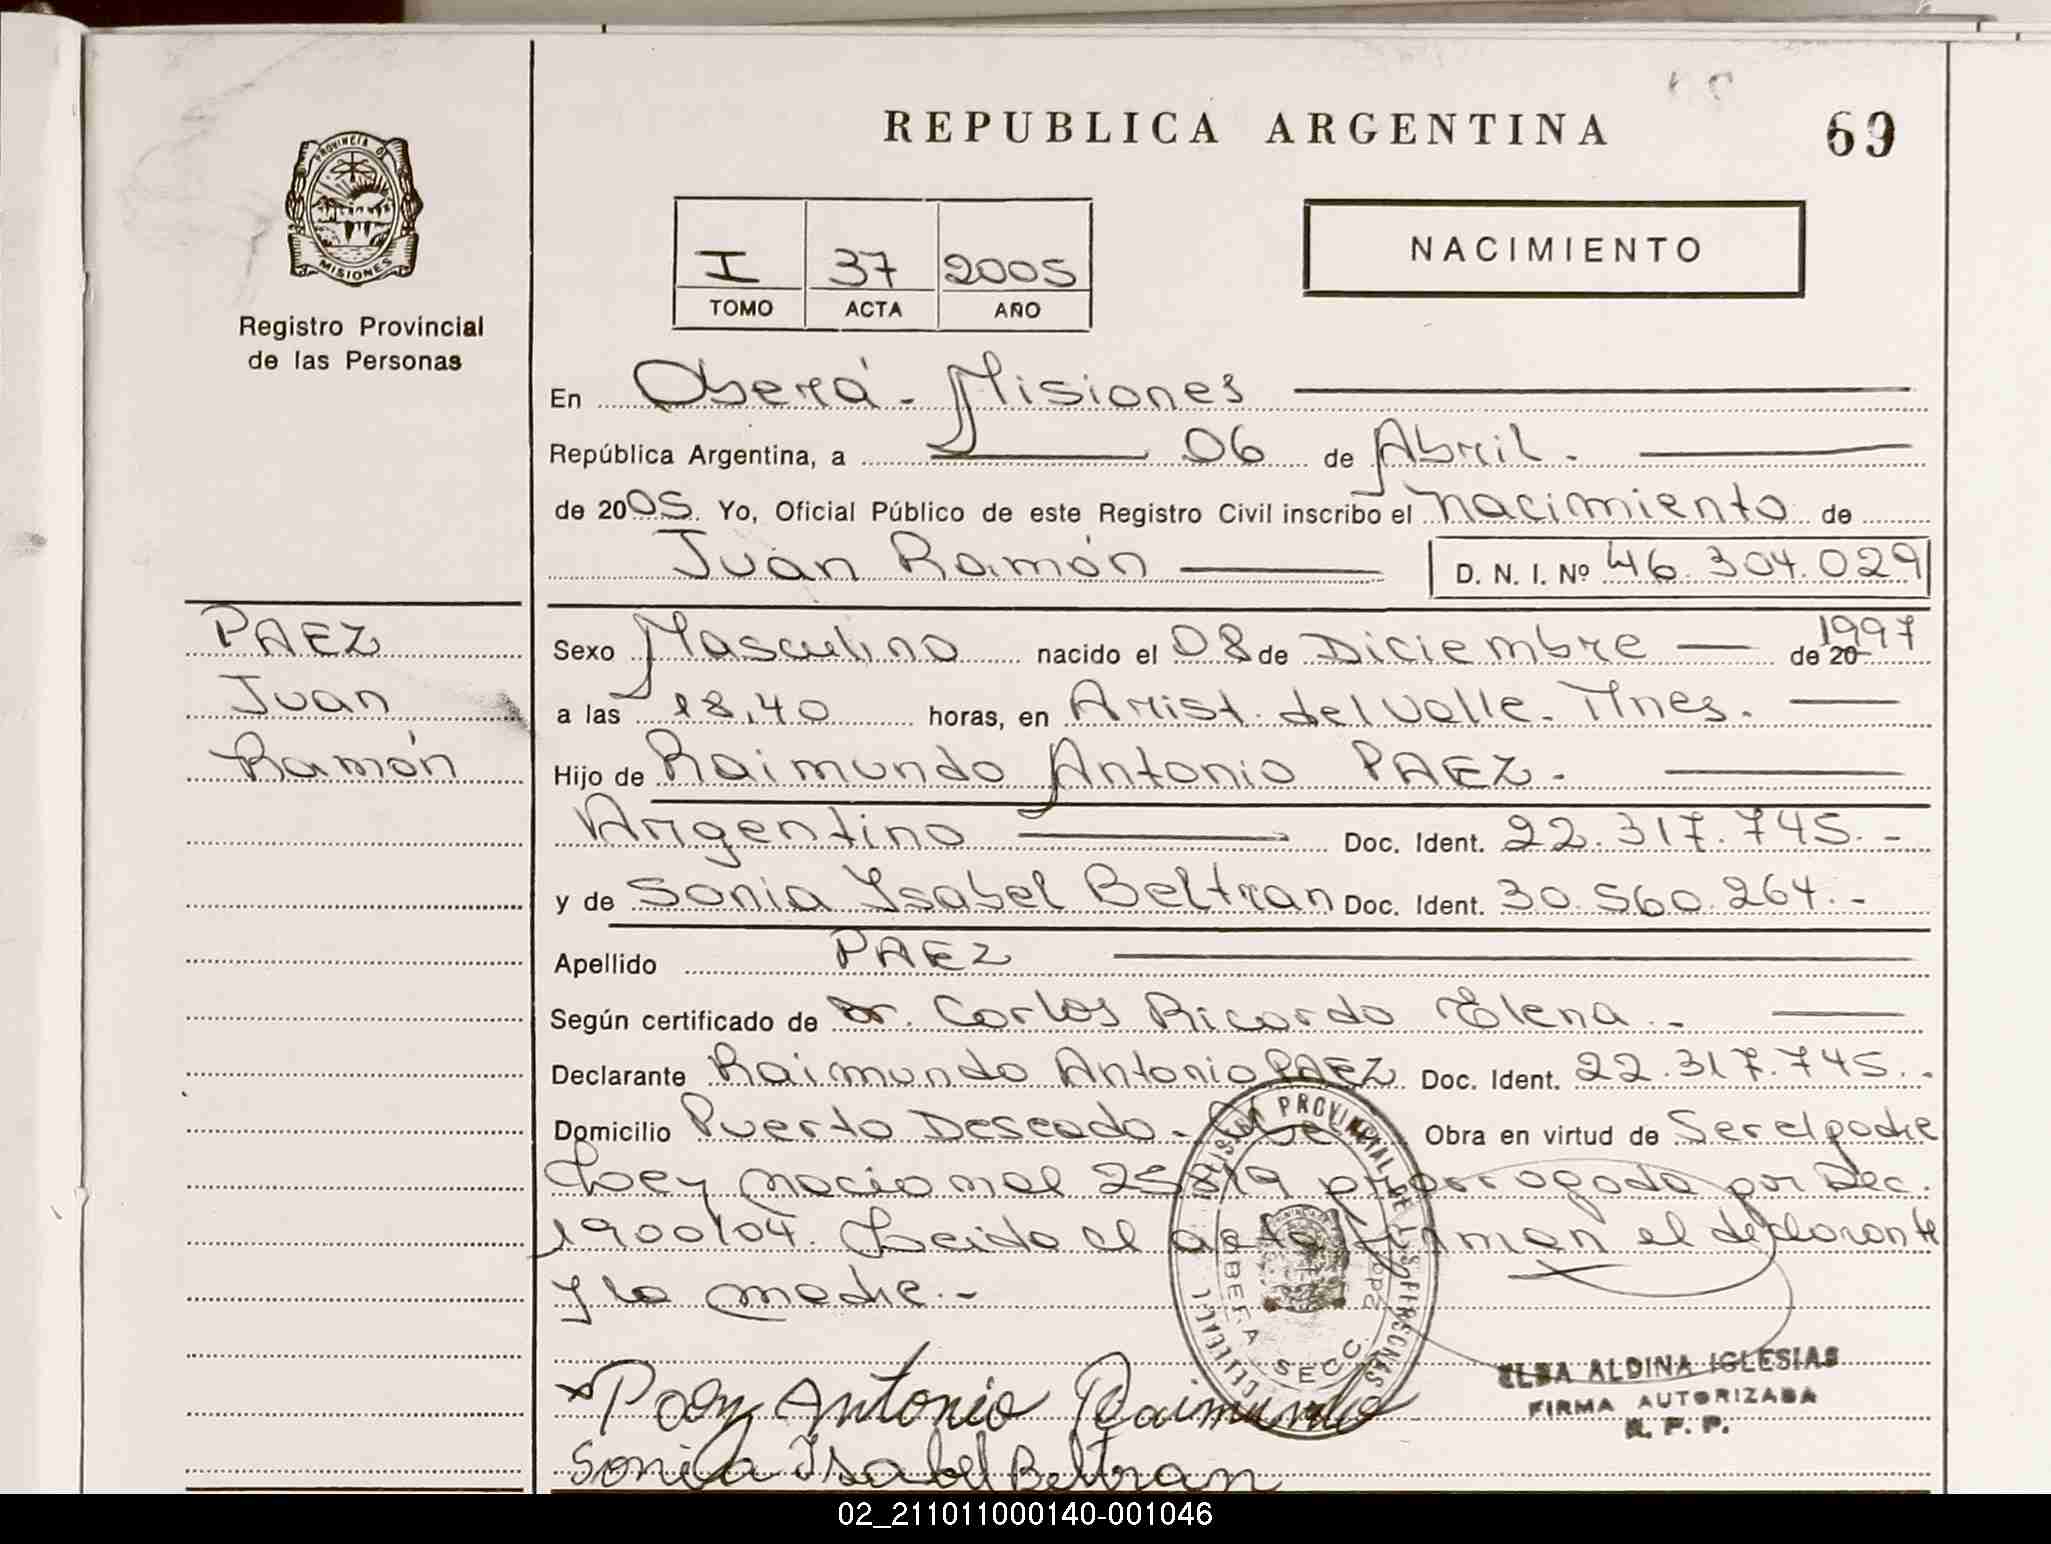 REPUBLICA ARGENTINA
69
PROVINCIA DE
MISIONES
Registro Provincial
de las Personas
I 37 2005
TOMO ACTA AÑO
NACIMIENTO
En Oberá - Misiones
República Argentina, a 06 de Abril.
de 2005. Yo, Oficial Público de este Registro Civil inscribo el nacimiento de
Juan Ramón D. N. I. Nº 46.304.029
PAEZ
Juan
Ramón
Sexo Masculino nacido el 08 de Diciembre de 20 1997
a las 18,40 horas, en Arist. del Valle. Mnes.
Hijo de Raimundo Antonio PAEZ.
Argentino Doc. Ident. 22.317.745.-
y de Sonia Ysabel Beltran Doc. Ident. 30.560.264.-
Apellido PAEZ
Según certificado de Dr. Carlos Ricardo Elena.-
Declarante Raimundo Antonio PAEZ Doc. Ident. 22.317.745.-
Domicilio Puerto Deseado - Obe Obra en virtud de Ser el padre
Ley nacional 25819 prorrogada por Dec.
1900/04. Leida el acta firman el declarante
y la madre.-
OBERA SECC. 2da
Paez Antonio Raimundo
Sonia Isabel Beltran
ELBA ALDINA IGLESIAS
FIRMA AUTORIZADA
R. P. P.
02_211011000140-001046